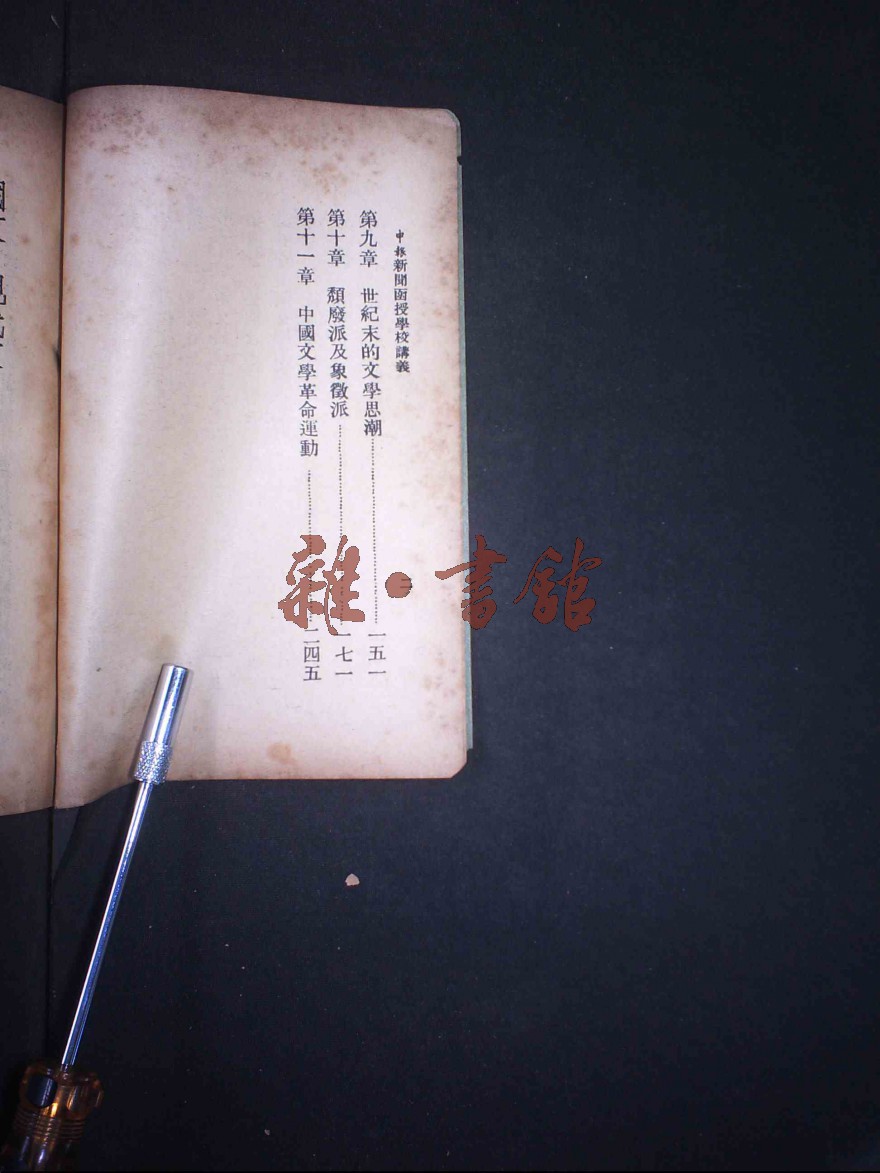 申報新聞函授學校講義
第九章　世紀末的文學思潮……………………一五一
第十章　頹廢派及象徵派……………………一七一
第十一章　中國文學革命運動……………………二四五
二
雜·書館